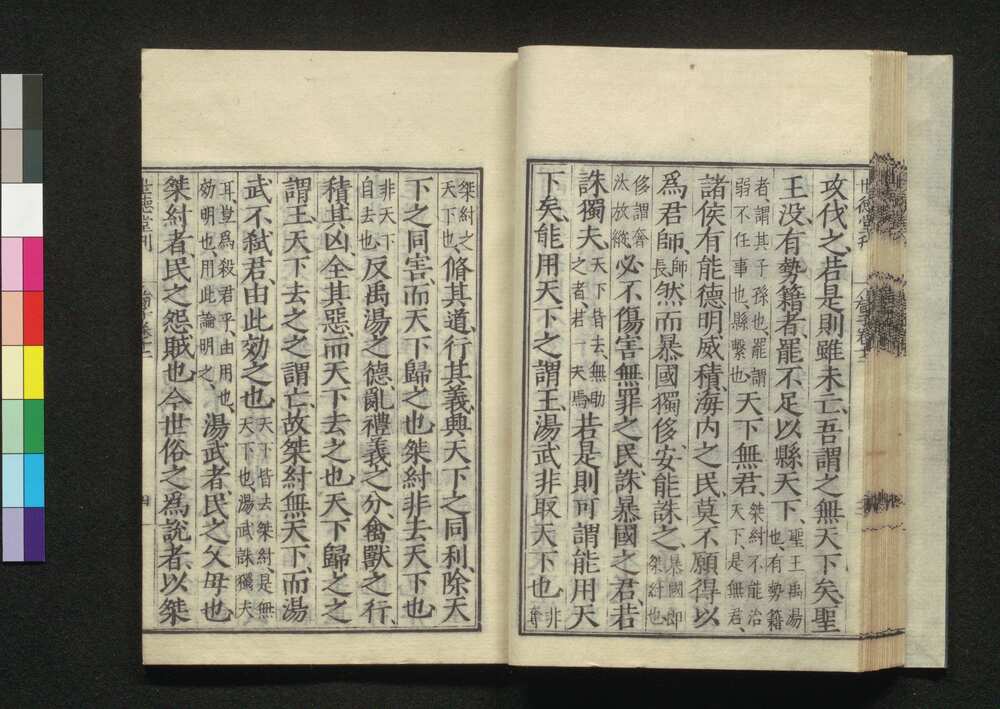 攻伐之、若是則雖未亡、吾謂之無天下矣、聖
王没、有勢籍者、罷不足以縣天下、聖王禹湯也、有勢籍
者、謂其子孫也、罷謂弱不任事也、縣繫也天下無君、桀紂不能治天下、是無君、
諸侯有能德明威積、海内之民、莫不願得以
爲君師、師長然而暴國獨侈、安能誅之、暴國即桀紂也
侈謂奢汰放縱必不傷害無罪之民、誅暴國之君、若
誅獨夫、天下皆去、無助之者、若一夫焉若是則可謂能用天
下矣、能用天下之謂王、湯武非取天下也非奪
桀紂之天下也、脩其道、行其義、興天下之同利、除天
下之同害、而天下歸之也、桀紂非去天下也
非天下自去也反禹湯之德、亂禮義之分、禽獸之行、
積其凶、全其惡、而天下去之也、天下歸之之
謂王、天下去之之謂亡、故桀紂無天下、而湯
武不弑君、由此効之也、天下皆去桀紂、是無天下也、湯武誅獨夫
耳、豈爲殺君乎、由用也、効明也、用此論明之、湯武者、民之父母也、
桀紂者、民之怨賊也、今世俗之爲說者、以桀
世德堂刊